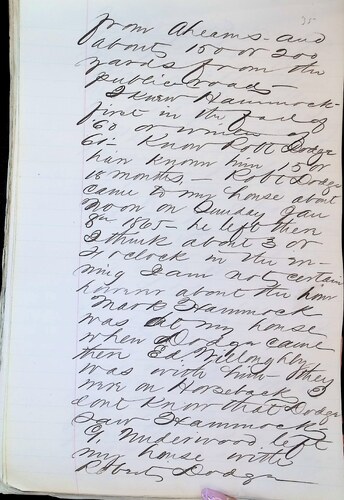 35
from Aheams - and
about 150 or 200
yards from the
public road -
I knew Hammock
first in the fall of
'60 or winter of
61 - Know Robt Dodge
han known him 15 or
18 months - Robt Dodge
came to my house about
noon on Sunday Jan
8th 1865 - he left then
I think about 3 or
4 o'clock in the m-
ning I am not certain
however about the hour
Mark Hammock
was at my house
when Dodge came
then Ed. Willoughby
was with him - they
were on Horseback I
dont know that Dodge
saw Hammock -
G. Underwood left
my house with
Robert Dodge